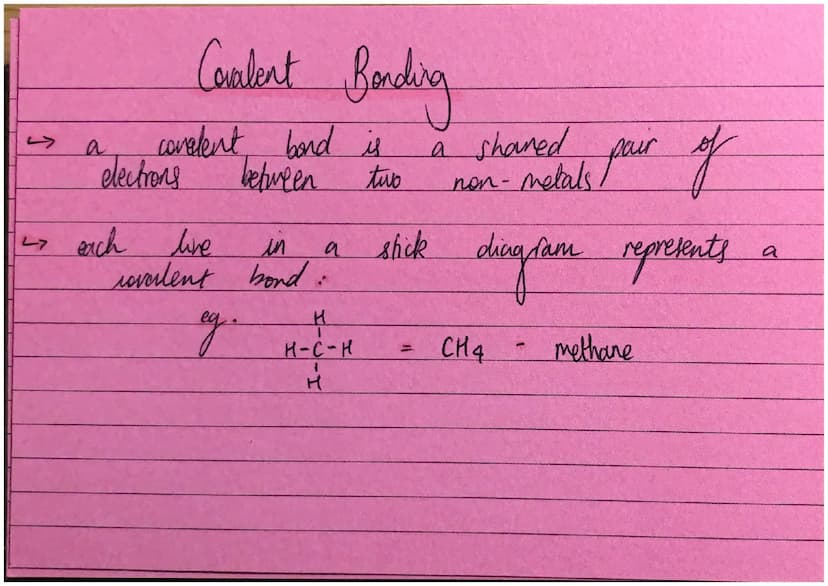 Covalent Bonding
↳ a covalent bond is a shared pair of
electrons between two non-metals
↳ each line in a stick diagram represents a
covalent bond :
eg. H
H-C-H = CH4 - methane
H